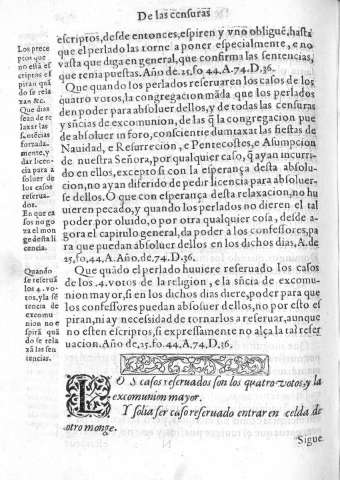 De las censuras
escriptos, desde entonces, espiren y vno obliguē, hasta
que el perlado las torne a poner especialmente, e no
vasta que diga en general, que confirma las sentencias,
que tenia puestas. Año de. 25, fo, 44. A. 74. D. 36.
Que quando los perlados reseruaren los casos de los
quatro votos, la congregacion māda que los perlados
den poder para absoluer dellos, y de todas las censuras
y sñcias de excomunion, de las q̄ la congregacion pue
de absoluer in foro, conscientie dumtaxat las fiestas de
Nauidad, e Resurrecion, e Pentecostes, e Asumpcion
de nuestra Señora, por qualquier caso, q̄ ayan incurri-
do en ellos, excepto si con la esperança desta absolu-
cion, no ayan diferido de pedir licencia para absoluer-
se dellos. O que con esperança desta relaxacion, no hu
uieren pecado, y quando los perlados no dieren el tal
poder por oluido, o por otra qualquier cosa, desde a-
gora el capitulo general, da poder a los confessores, pa
ra que puedan absoluer dellos en los dichos dias, A. de
25, fo, 44. A. Año, de. 74. D. 36.
Que quādo el perlado huuiere reseruado los casos
de los .4. votos de la religion, e la sñcia de excomu-
nion mayor, si en los dichos dias diere, poder para que
los confessores puedan absoluer dellos, no por esto es
piran, ni ay necessidad de tornarlos a reseruar, aunque
no esten escriptos, si expressamente no alça la tal reser
uacion. Año, de. 25. fo. 44. A, 74, D, 36.
Los prece
ptos que
no está es
criptos es
piran quā
do se rela
xan &c.
Que dias
sean de re
laxar las
sentēcias
forzada-
mente, y
dar licen-
cia para a
soluer de
los casos
reserua-
dos.
En que ca
sos no go
ya el mon
ge desta li
cencia.
Quando
se reseruā
los 4. vo-
tos, y la sē
tencia de
excomu
nion no e
spirā quā
do se rela
xā las sen
tencias.
LOS casos reseruados son los quatro votos, y la
excomunion mayor.
Y solia ser caso reseruado entrar en celda de
otro monge.
Sigue